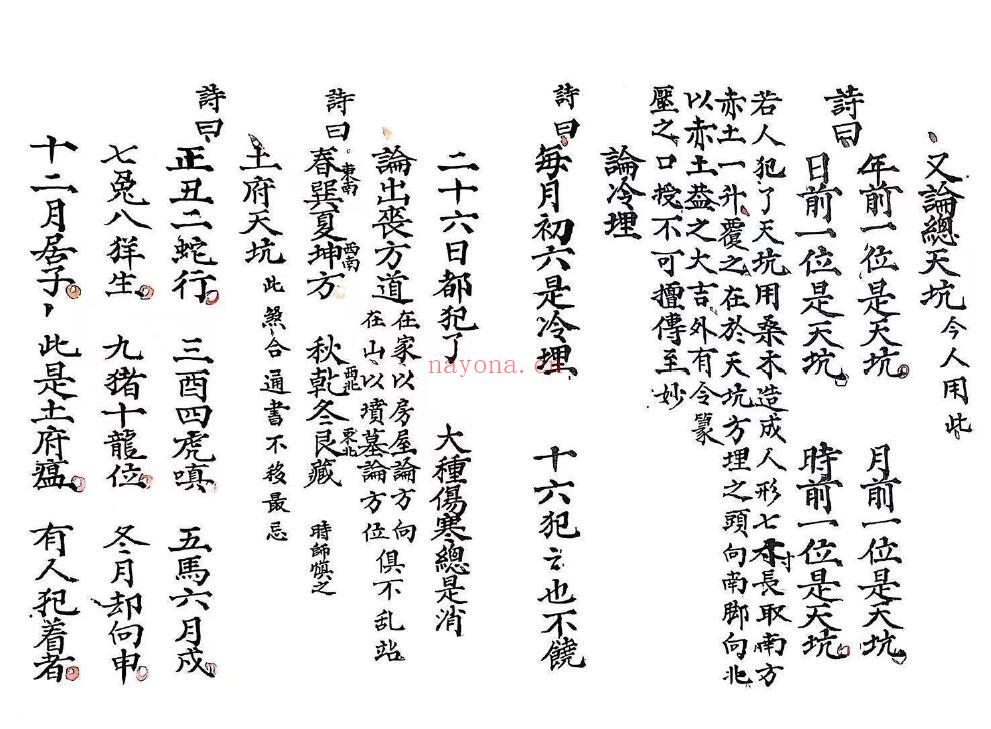 又論總天坑 今人用此
詩曰 年前一位是天坑 月前一位是天坑
日前一位是天坑 時前一位是天坑
若人犯了天坑用桑木造成人形七寸長取南方
赤土一升覆之在於天坑方埋之頭向南脚向北
以赤土蓋之大吉外有令篆
壓之口授不可擅傳至妙
論冷埋
詩曰 每月初六是冷埋 十六犯之也不饒
二十六日都犯了 大種傷寒總是消
論出喪方道 在家以房屋論方向 在山以墳墓論方位 俱不乱站
詩曰 春東南巽夏坤西南方 秋乾西北冬艮東北藏 時師慎之
土府天坑 此煞合通書不移最忌
詩曰 正丑二蛇行 三酉四虎嗔 五馬六月戍
七兔八羊生 九猪十龍位 冬月却向申
十二月居子 此是土府瘟 有人犯着者
nayona.cn